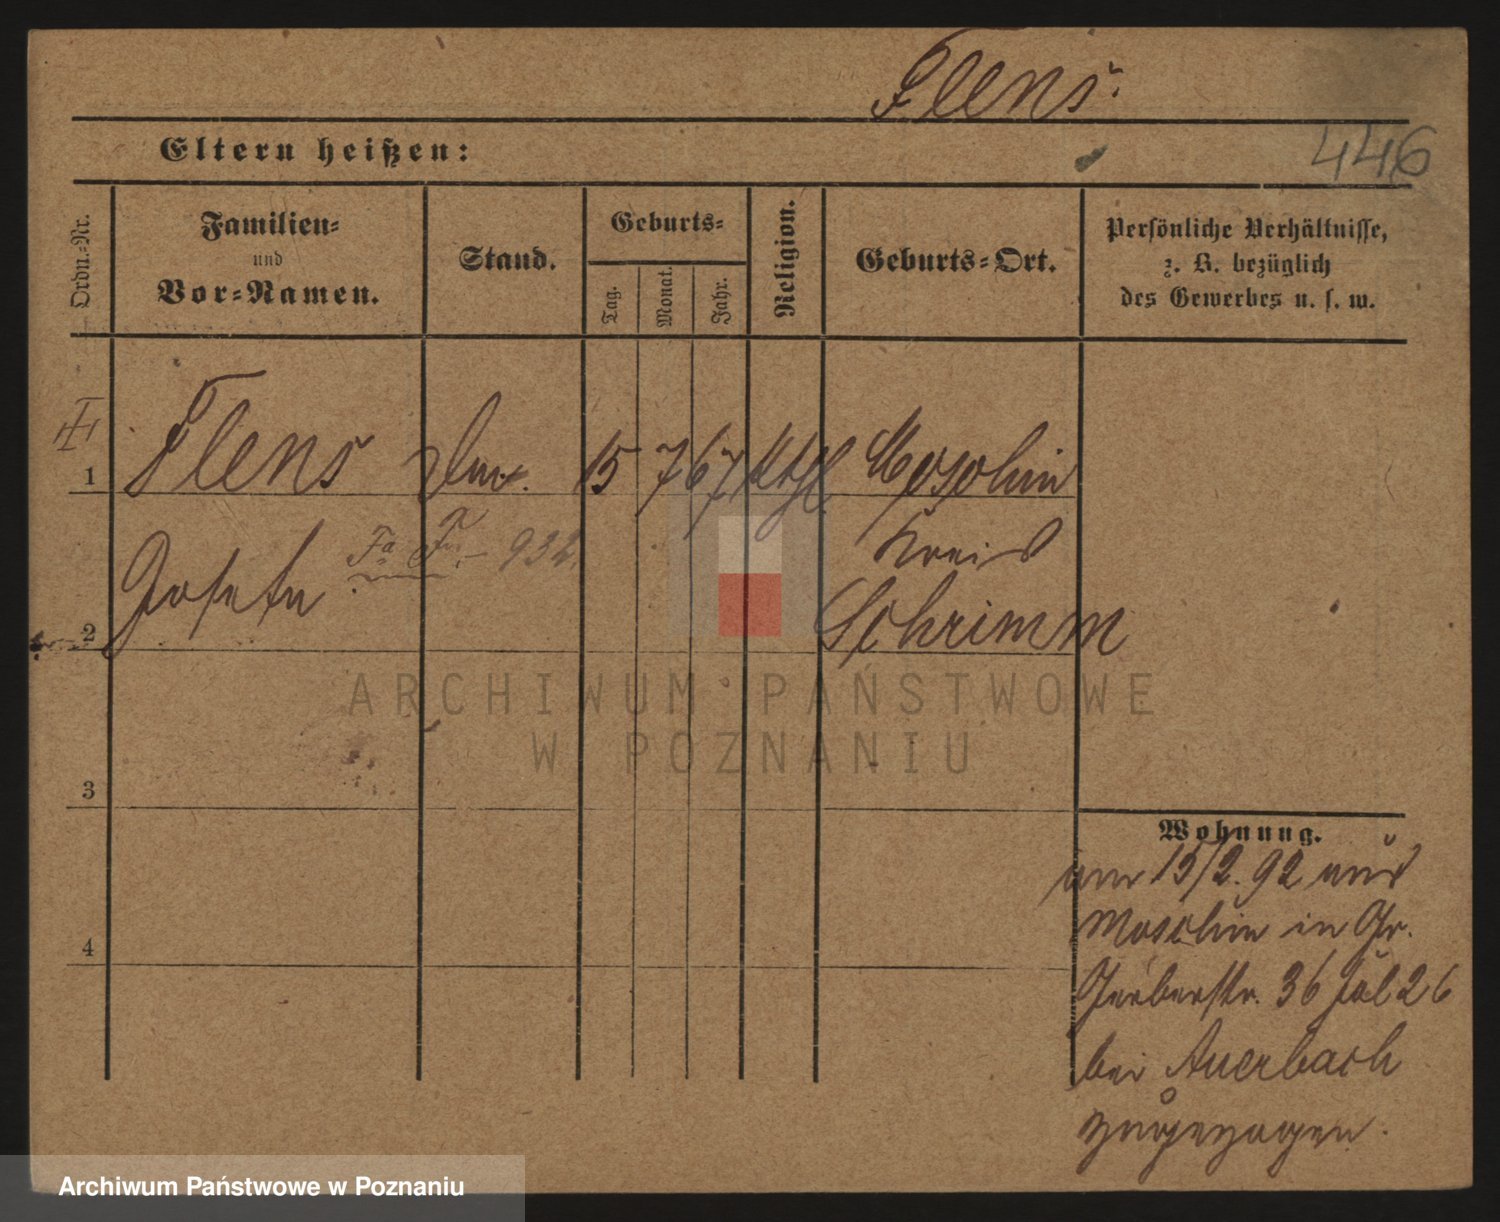 Flens.
Eltern heißen:
446
Ordn.=Nr.
Familien=
und
Vor=Namen.
Stand.
Geburts=
Tag.
Monat.
Jahr.
Religion.
Geburts=Ort.
Persönliche Verhältnisse,
z. B. bezüglich
des Gewerbes u. s. w.
1 Flens 15 7 67 Kthl. Moschin
Kreis
2 Josefa Schrimm
ARCHIWUM PAŃSTWOWE
W POZNANIU
3
4
Wohnung.
15/2. 92 aus
Moschin in Gr.
Gerberstr. 36 26
bei Auerbach
zugezogen.
Archiwum Państwowe w Poznaniu